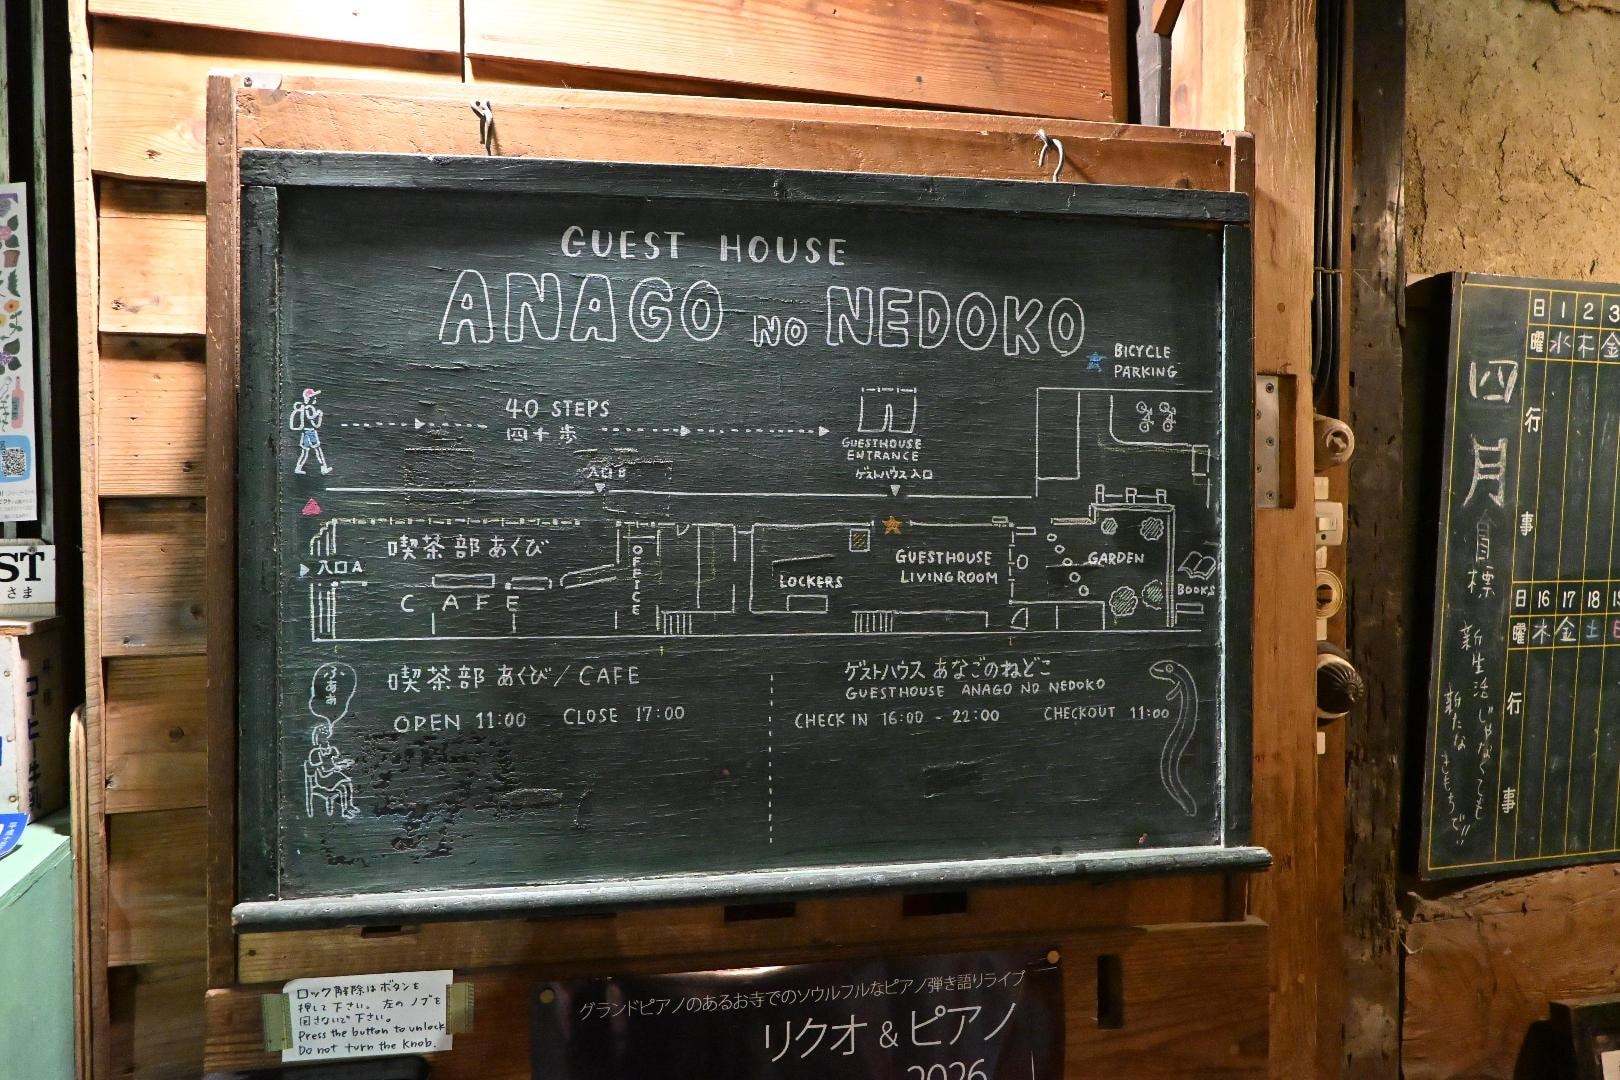 GUEST HOUSE
ANAGO NO NEDOKO
BICYCLE
PARKING
40 STEPS
四十歩
GUESTHOUSE
ENTRANCE
ゲストハウス入口
入口B
喫茶部あくび
入口A
CAFE
OFFICE
LOCKERS
GUESTHOUSE
LIVING ROOM
GARDEN
BOOKS
喫茶部 あくび/CAFE
OPEN 11:00 CLOSE 17:00
ふぁぁ
ゲストハウス あなごのねどこ
GUESTHOUSE ANAGO NO NEDOKO
CHECK IN 16:00 - 22:00 CHECKOUT 11:00
ロック解除はボタンを
押して下さい。左のノブを
回さないで下さい。
Press the button to unlock
Do not turn the knob.
グランドピアノのあるお寺でのソウルフルなピアノ弾き語りライブ
リクオ & ピアノ
2026
四月
目標
新生活じゃなくても
新たな きもちで!!
日 1 2 3
曜 水 木 金
行
事
日 16 17 18 19
曜 木 金 土 日
行
事
ST
さま